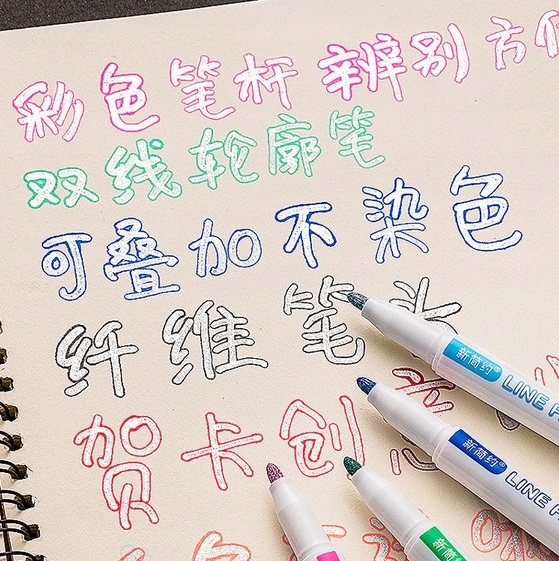 彩色笔杆 辨别方
双线轮廓笔
可叠加不染色
纤维笔头
贺卡创
色
新简约® LINE
新简约® LINE
新简约